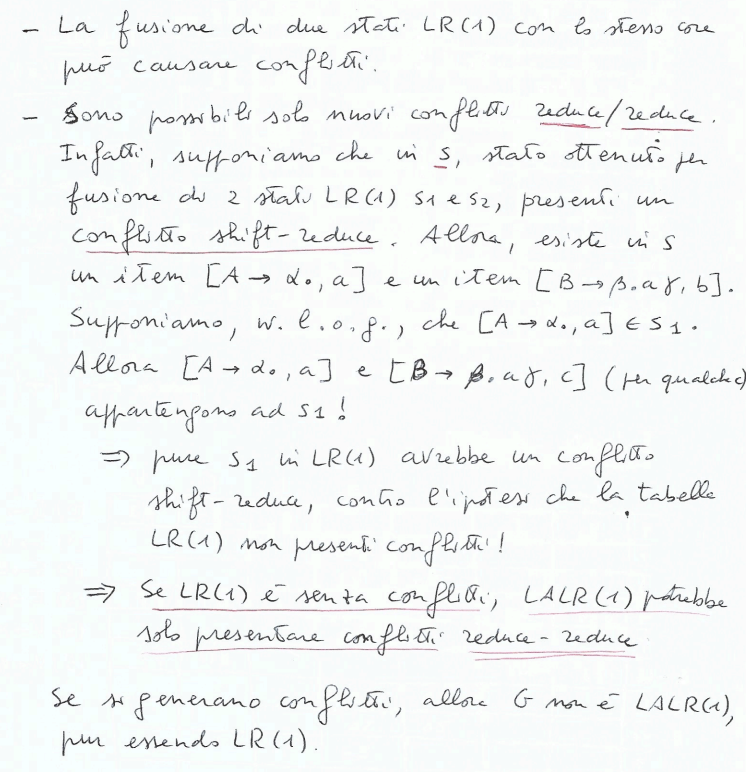 - La fusione di due stati LR(1) con lo stesso core
può causare conflitti.
- Sono possibili solo nuovi conflitti reduce/reduce.
Infatti, supponiamo che in s, stato ottenuto per
fusione di 2 stati LR(1) s1 e s2, presenti un
conflitto shift-reduce. Allora, esiste in s
un item [A → α., a] e un item [B → β.aγ, b].
Supponiamo, w.l.o.g., che [A → α., a] ∈ s1.
Allora [A → α., a] e [B → β.aγ, c] (per qualche c)
appartengono ad s1!
⇒ pure s1 in LR(1) avrebbe un conflitto
shift-reduce, contro l'ipotesi che la tabella
LR(1) non presenti conflitti!
⇒ Se LR(1) è senza conflitti, LALR(1) potrebbe
solo presentare conflitti reduce-reduce
Se si generano conflitti, allora G non è LALR(1),
pur essendo LR(1).